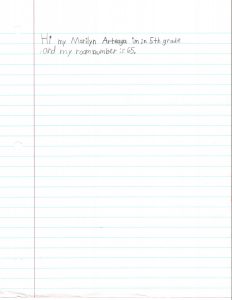 Hi my Marilyn Arteaga im in 5th grade
and my roomnumber is 65.